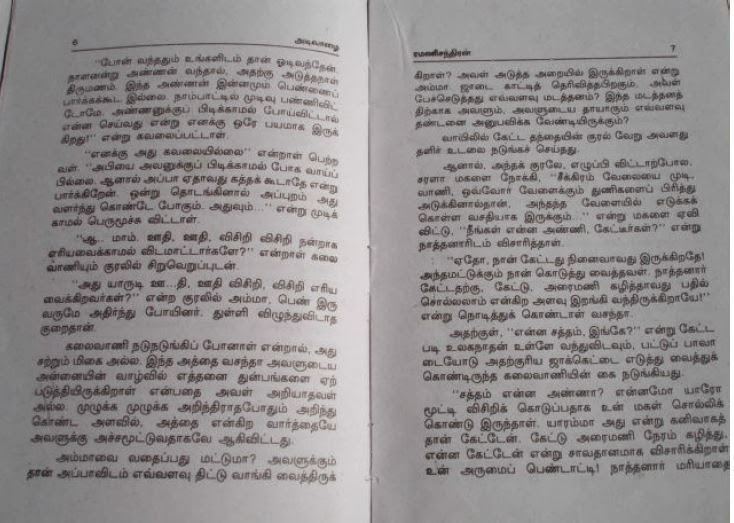 6
அடிவாழை
"போன் வந்ததும் உங்களிடம் தான் ஓடிவந்தேன்.
நாளனன்று அண்ணன் வந்தால், அதற்கு அடுத்தநாள்
திருமணம். இந்த அண்ணன் இன்னமும் பெண்ணைப்
பார்க்கக்கூட இல்லை. நாம்பாட்டில் முடிவு பண்ணிவிட்
டோமே. அண்ணனுக்குப் பிடிக்காமல் போய்விட்டால்
என்ன செய்வது என்று எனக்கு ஒரே பயமாக இருக்
கிறது!" என்று கவலைப்பட்டாள்.
"எனக்கு அது கவலையில்லை" என்றாள் பெற்ற
வள். "அபியை அவனுக்குப் பிடிக்காமல் போக வாய்ப்
பில்லை. ஆனால் அப்பா ஏதாவது கத்தக் கூடாதே என்று
பார்க்கிறேன். ஒன்று தொடங்கினால் அப்புறம் அது
வளர்ந்து கொண்டே போகும். அதுவும்..." என்று முடிக்
காமல் பெருமூச்சு விட்டாள்.
"ஆ.. மாம். ஊதி, ஊதி, விசிறி விசிறி நன்றாக
எரியவைக்காமல் விடமாட்டார்களே?" என்றாள் கலை
வாணியும் குரலில் சிறுவெறுப்புடன்.
"அது யாருடி ஊ...தி, ஊதி விசிறி, விசிறி எரிய
வைக்கிறவர்கள்?" என்ற குரலில் அம்மா, பெண் இரு
வருமே அதிர்ந்து போயினர். துள்ளி விழுந்துவிடாத
குறைதான்.
கலைவாணி நடுநடுங்கிப் போனாள் என்றால், அது
சற்றும் மிகை அல்ல. இந்த அத்தை வசந்தா அவளுடைய
அன்னையின் வாழ்வில் எத்தனை துன்பங்களை ஏற்
படுத்தியிருக்கிறாள் என்பதை அவள் அறியாதவள்
அல்ல. முழுக்க முழுக்க அறிந்திராதபோதும் அறிந்து
கொண்ட அளவில், அத்தை என்கிற வார்த்தையே
அவளுக்கு அச்சமூட்டுவதாகவே ஆகிவிட்டது.
அம்மாவை வதைப்பது மட்டுமா? அவளுக்கும்
தான் அப்பாவிடம் எவ்வளவு திட்டு வாங்கி வைத்திருக்
ரமணிசந்திரன்
7
கிறாள்? அவள் அடுத்த அறையில் இருக்கிறாள் என்று
அம்மா ஜாடை காட்டித் தெரிவித்தபிறகும். அவள்
பேச்செடுத்தது எவ்வளவு மடத்தனம்? இந்த மடத்தனத்
திற்காக அவளும், அவளுடைய தாயாரும் எவ்வளவு
தண்டனை அனுபவிக்க வேண்டியிருக்கும்?
வாயிலில் கேட்ட தந்தையின் குரல் வேறு அவளது
தளிர் உடலை நடுங்கச் செய்தது.
ஆனால், அந்தக் குரலே, எழுப்பி விட்டாற்போல,
சரளா மகளை நோக்கி, "சீக்கிரம் வேலையை முடி,
வாணி, ஒவ்வோர் வேளைக்கும் துணிகளைப் பிரித்து
அடுக்கினால்தான், அந்தந்த வேளையில் எடுக்கக்
கொள்ள வசதியாக இருக்கும்..." என்று மகளை ஏவி
விட்டு, "நீங்கள் என்ன அண்ணி, கேட்டீர்கள்?" என்று
நாத்தனாரிடம் விசாரித்தாள்.
"ஏதோ, நான் கேட்டது நினைவாவது இருக்கிறதே!
அந்தமட்டுக்கும் நான் கொடுத்து வைத்தவள். நாத்தனார்
கேட்டதற்கு, கேட்டு, அரைமணி கழித்தாவது பதில்
சொல்லலாம் என்கிற அளவு இறங்கி வந்திருக்கிறாயே!"
என்று நொடித்துக் கொண்டாள் வசந்தா.
அதற்குள், "என்ன சத்தம், இங்கே?" என்று கேட்ட
படி உலகநாதன் உள்ளே வந்துவிடவும், பட்டுப் பாவா
டையோடு அதற்குரிய ஜாக்கெட்டை எடுத்து வைத்துக்
கொண்டிருந்த கலைவாணியின் கை நடுங்கியது.
"சத்தம் என்ன அண்ணா? என்னமோ யாரோ
மூட்டி விசிறிக் கொடுப்பதாக உன் மகள் சொல்லிக்
கொண்டு இருந்தாள். யாரம்மா அது என்று கனிவாகத்
தான் கேட்டேன். கேட்டு அரைமணி நேரம் கழித்து,
என்ன கேட்டேன் என்று சாவதானமாக விசாரிக்கிறாள்
உன் அருமைப் பெண்டாட்டி! நாத்தனார் மரியாதை